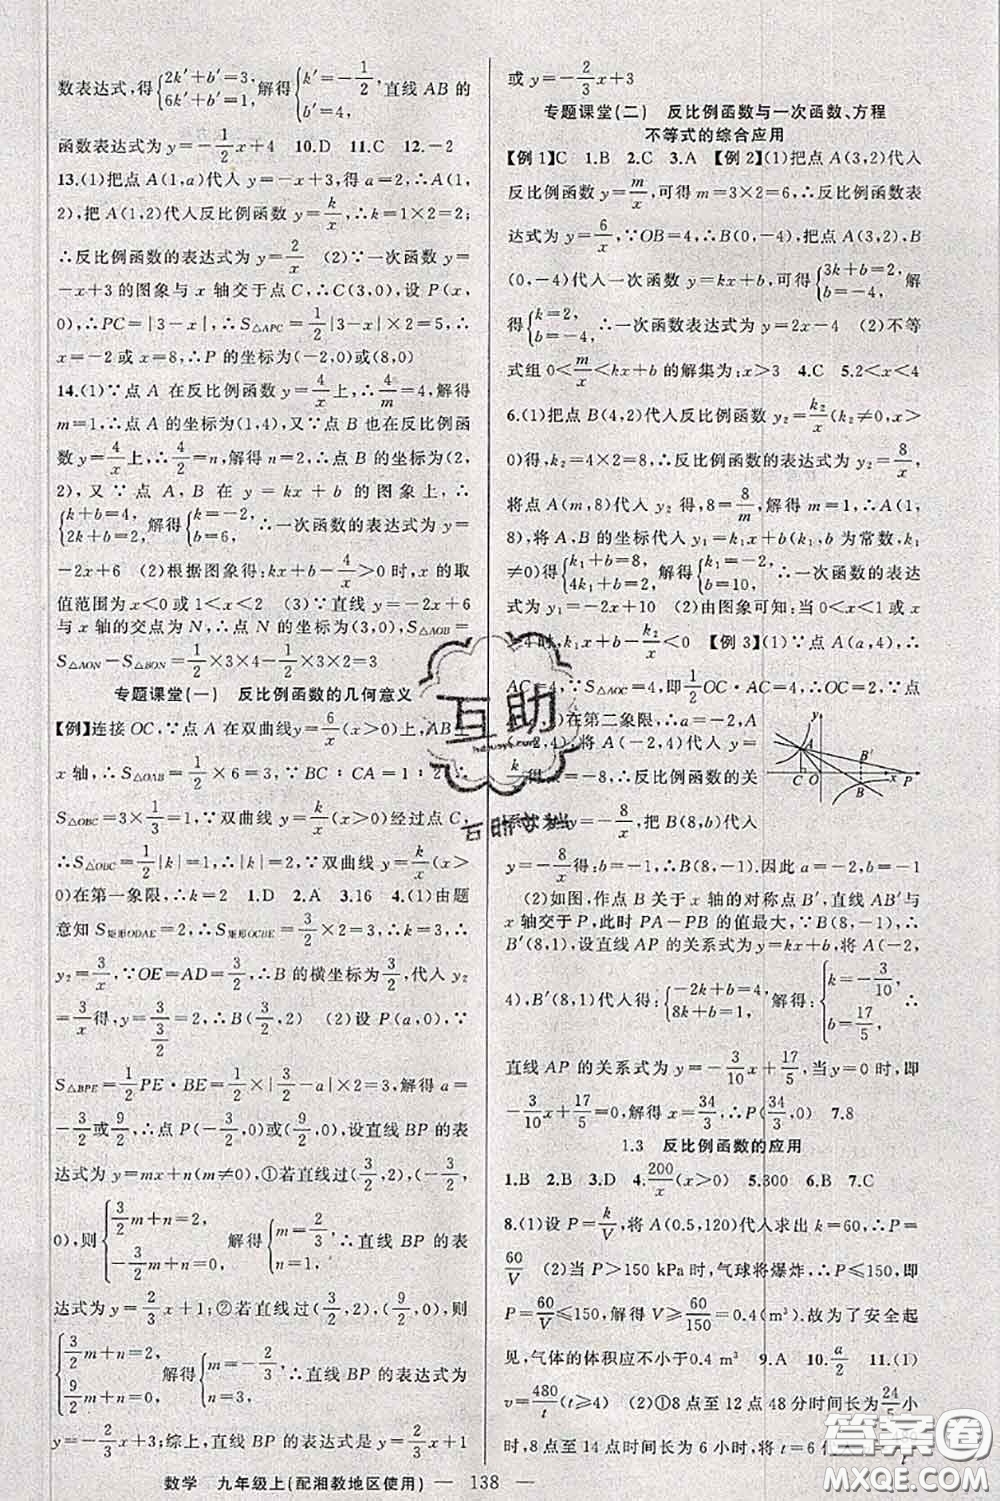 数表达式,得{2k′+b′=3, 6k′+b′=1, 解得{k′=-1/2, b′=4, 直线 AB 的
函数表达式为 y=-1/2x+4 10.D 11.C 12.-2
13.(1)把点 A(1,a)代人 y=-x+3,得 a=2,∴A(1,
2),把 A(1,2)代人反比例函数 y=k/x,∴k=1×2=2;
∴反比例函数的表达式为 y=2/x (2)∵一次函数 y=
-x+3 的图象与 x 轴交于点 C,∴C(3,0),设 P(x,
0),∴PC=|3-x|,∴S△APC=1/2|3-x|×2=5,∴
x=-2 或 x=8,∴P 的坐标为(-2,0)或(8,0)
14.(1)∵点 A 在反比例函数 y=4/x上,∴4/m=4,解得
m=1,∴点 A 的坐标为(1,4),又∵点 B 也在反比例函
数 y=4/x上,∴4/2=n,解得 n=2,∴点 B 的坐标为(2,
2),又∵点 A、B 在 y=kx+b 的图象上,∴
{k+b=4, 2k+b=2, 解得{k=-2, b=6, ∴一次函数的表达式为 y=
-2x+6 (2)根据图象得:kx+b-4/x>0 时,x 的取
值范围为 x<0 或 1<x<2 (3)∵直线 y=-2x+6
与 x 轴的交点为 N,∴点 N 的坐标为(3,0),S△AOB=
S△AON-S△BON=1/2×3×4-1/2×3×2=3
专题课堂(一) 反比例函数的几何意义
【例】连接 OC,∵点 A 在双曲线 y=6/x(x>0)上,AB⊥
x 轴,∴S△OAB=1/2×6=3,∵BC∶CA=1∶2,∴
S△OBC=3×1/3=1,∵双曲线 y=k/x经过点 C,
∴S△OBC=1/2|k|=1,∴|k|=2,∵双曲线 y=k/x(x>
0)在第一象限,∴k=2 1.D 2.A 3.16 4.(1)由题
意知 S矩形ODAE=S矩形OCBE=3/2,∴k2=3/2×2=3,∴
y2=3/x,∵OE=AD=3/2,∴B 的横坐标为3/2,代人 y2
=3/x得,y=3/(3/2)=2,∴B(3/2,2) (2)设 P(a,0),∵
S△BPE=1/2PE·BE=1/2×|3/2-a|×2=3,解得 a=
-3/2或9/2,∴点 P(-3/2,0)或(9/2,0),设直线 BP 的表
达式为 y=mx+n(m≠0),①若直线过(3/2,2),(-3/2,
0),则{3/2m+n=2, -3/2m+n=0, 解得{m=2/3, n=1, ∴直线 BP 的表
达式为 y=2/3x+1;②若直线过(3/2,2),(9/2,0),则
{3/2m+n=2, 9/2m+n=0, 解得{m=-2/3, n=3, ∴直线 BP 的表达式
y=-2/3x+3;综上,直线 BP 的表达式是 y=2/3x+1
或 y=-2/3x+3
专题课堂(二) 反比例函数与一次函数、方程
不等式的综合应用
【例1】C 1.B 2.C 3.A 【例2】(1)把点 A(3,2)代人
反比例函数 y=m/x,可得 m=3×2=6,∴反比例函数表
达式为 y=6/x,∵OB=4,∴B(0,-4),把点 A(3,2),B
(0,-4)代人一次函数 y=kx+b,可得{3k+b=2, b=-4, 解
得{k=2, b=-4, ∴一次函数表达式为 y=2x-4 (2)不等
式组 0<m/x<kx+b 的解集为:x>3 4.C 5.2<x<4
6.(1)把点 B(4,2)代人反比例函数 y2=k2/x(k2≠0,x>
0)得,k2=4×2=8,∴反比例函数的表达式为 y2=8/x,
将点 A(m,8)代人 y2 得,8=8/m,解得 m=1,∴A(1,
8),将 A、B 的坐标代人 y1=k1x+b(k1、b 为常数,k1
≠0)得{k1+b=8, 4k1+b=2, 解得{k1=-2, b=10, ∴一次函数的表达
式为 y1=-2x+10 (2)由图象可知:当 0<x<1 或 x
>4 时,k1x+b-k2/x<0 【例3】(1)∵点 A(a,4),∴
AC=4,∵S△AOC=4,即1/2OC·AC=4,∴OC=2,∵点
A(a,4)在第二象限,∴a=-2,A
(-2,4),将 A(-2,4)代人 y=
k/x得:k=-8,∴反比例函数的关
系式为 y=-8/x,把 B(8,b)代人
y=-8/x得:b=-1,∴B(8,-1).因此 a=-2,b=-1
(2)如图,作点 B 关于 x 轴的对称点 B′,直线 AB′与
x 轴交于 P,此时 PA-PB 的值最大,∵B(8,-1),∴
B′(8,1),设直线 AP 的关系式为 y=kx+b,将 A(-2,
4),B′(8,1)代人得:{-2k+b=4, 8k+b=1, 解得:{k=-3/10, b=17/5, ∴
直线 AP 的关系式为 y=-3/10x+17/5,当 y=0 时,即
-3/10x+17/5=0,解得 x=34/3,∴P(34/3,0) 7.8
1.3 反比例函数的应用
1.B 2.B 3.D 4.200/x(x>0) 5.300 6.B 7.C
8.(1)设 P=k/V,将 A(0.5,120)代人求出 k=60,∴P=
60/V (2)当 P>150 kPa 时,气球将爆炸,∴P≤150,即
P=60/V≤150,解得 V≥60/150=0.4(m³).故为了安全起
见,气体的体积应不小于0.4 m³ 9.A 10.a/2 11.(1)
v=480/t(t≥4) (2)①8 点至 12 点 48 分时间长为24/5小
时,8 点至 14 点时间长为 6 小时,将 t=6 代人
A B′ C O B P x
互助
数学 九年级上(配湘教地区使用) — 138 —
答案圈
MXQE.COM